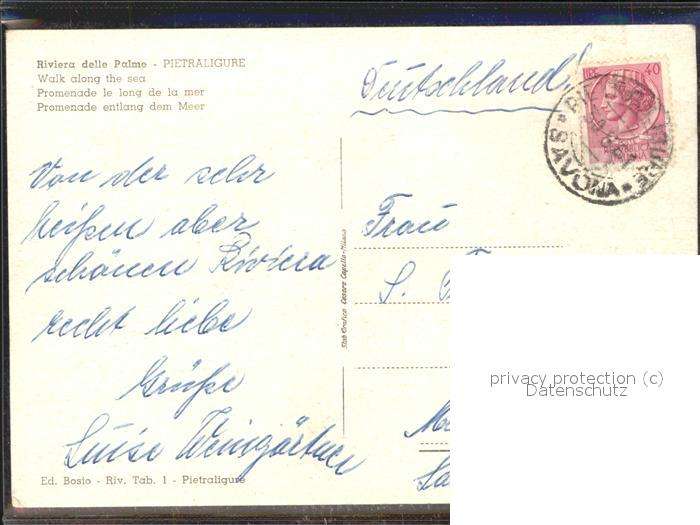 Riviera delle Palme - PIETRALIGURE
Walk along the sea
Promenade le long de la mer
Promenade entlang dem Meer
Deutschland!
LIRE 40
SAVONA
Von der sehr
heißen aber
schönen Riviera
recht liebe
Grüße
Luise Weingärtner
Frau
S.
Stab. Grafico Cesare Capello - Milano
privacy protection (c)
Datenschutz
Ed. Bosio - Riv. Tab. 1 - Pietraligure